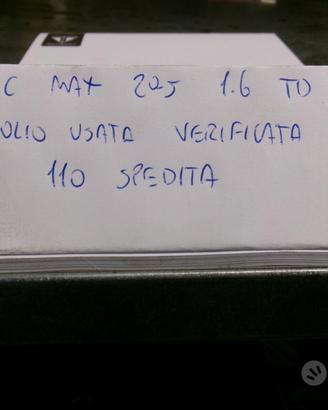 C MAX 205 1.6 TD
OLIO USATA VERIFICATA
110 SPEDITA